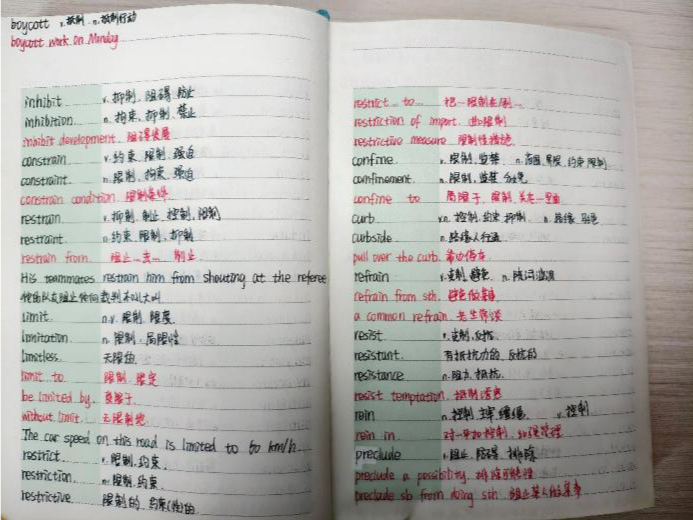 boycott v.抵制 n.抵制行动
boycott work on Monday
inhibit v.抑制、阻碍、防止
inhibition n.拘束、抑制、禁止
inhibit development 阻碍发展
constrain v.约束、限制、强迫
constraint n.限制、拘束、强迫
constrain condition 限制条件
restrain v.抑制、制止、控制、限制
restraint n.约束、限制、抑制
restrain from 阻止…去…制止
His teammates restrain him from shouting at the referee
他的队友阻止他向裁判大叫
limit n.v.限制、限度
limitation n.限制、局限性
limitless 无限的
limit to 限制、限定
be limited by 受限于
without limit 无限制地
The car speed on this road is limited to 60 km/h
restrict v.限制、约束
restriction n.限制、约束
restrictive 限制的、约束(性)的
restrict … to … 把…限制在
restriction of import 进口限制
restrictive measure 限制性措施
confine v.限制、监禁 n.范围、界限、约束、限制
confinement n.限制、监禁、分娩
confine to 局限于、限制
curb v.n.控制、约束、抑制 n.路缘
curbside n.路缘、人行道
pull over the curb 靠边停车
refrain v.克制、避免 n.
refrain from sth. 避免做某事
a common refrain 老生常谈
resist v.克制、反抗
resistant 有抵抗力的、反抗的
resistance n.阻力、抵抗
resist temptation 抵制诱惑
rein n.控制、主宰、缰绳 v.控制
rein in 对…严加控制、加强管理
preclude v.阻止、防碍、排除
preclude a possibility 排除可能性
preclude sb from doing sth 阻止某人做某事